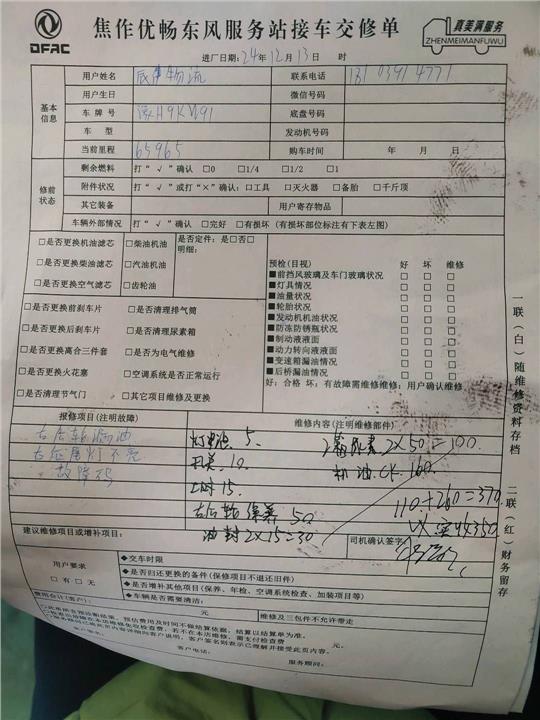 DFAC
焦作优畅东风服务站接车交修单
真美满服务
ZHENMEIMANFUWU
进厂日期：24年12月13日 时
基本信息
用户姓名 物流 联系电话
用户生日 微信号码
车牌号 底盘号码
车型 发动机号码
当前里程 65965 购车时间 年 月 日
修前状态
剩余燃料 打“√”确认 □0 □1/4 □1/2 □1
附件状况 打“√”或打“×”确认：□工具 □灭火器 □备胎 □千斤顶
其它装备 用户寄存物品
车辆外部情况 打“√”确认 □完好 □有损坏（有损坏部位标注有下表左图）
□是否更换机油滤芯 □柴油机油
□是否更换柴油滤芯 □汽油机油
□是否更换空气滤芯 □齿轮油
是否定件：是□否□
明细：
□是否更换前刹车片 □是否清理排气筒
□是否更换后刹车片 □是否清理尿素箱
□是否更换离合三件套 □是否为电气维修
□是否更换火花塞 □空调系统是否正常运行
□是否清理节气门 □其它项目维修及更换
预检（目视） 好 坏 维修
■前挡风玻璃及车门玻璃状况 □ □ □
■灯具情况 □ □ □
■油量状况 □ □ □
■轮胎状况 □ □ □
■发动机机油状况 □ □ □
■防冻防锈瓶状况 □ □ □
■制动液液面 □ □ □
■动力转向液液面 □ □ □
■变速箱漏油情况 □ □ □
■后桥漏油情况 □ □ □
好：合格 坏：有故障需维修维修：用户确认维修
报修项目（注明故障） 维修内容（注明维修部件）
右后轮漏油
灯不亮
故障码
灯 5.
开关.10.
工时15.
右后轮 50
油封2X15=30
尿素2X50=100.
机油.CK.160.
110+260=370
350
建议维修项目或增补项目： 司机确认签字
用户要求
□有 □无
◆交车时间
◆是否归还更换的备件（保修项目不退还旧件）
◆是否增补其他项目（保养、年检、空调系统检查、加装项目等）
◆车辆是否需要清洁：
费用合计（客户）： 元
维修及三包件不允许带走
客户签名：
客户电话：
服务顾问：
一联（白）随维修资料存档
二联（红）财务留存